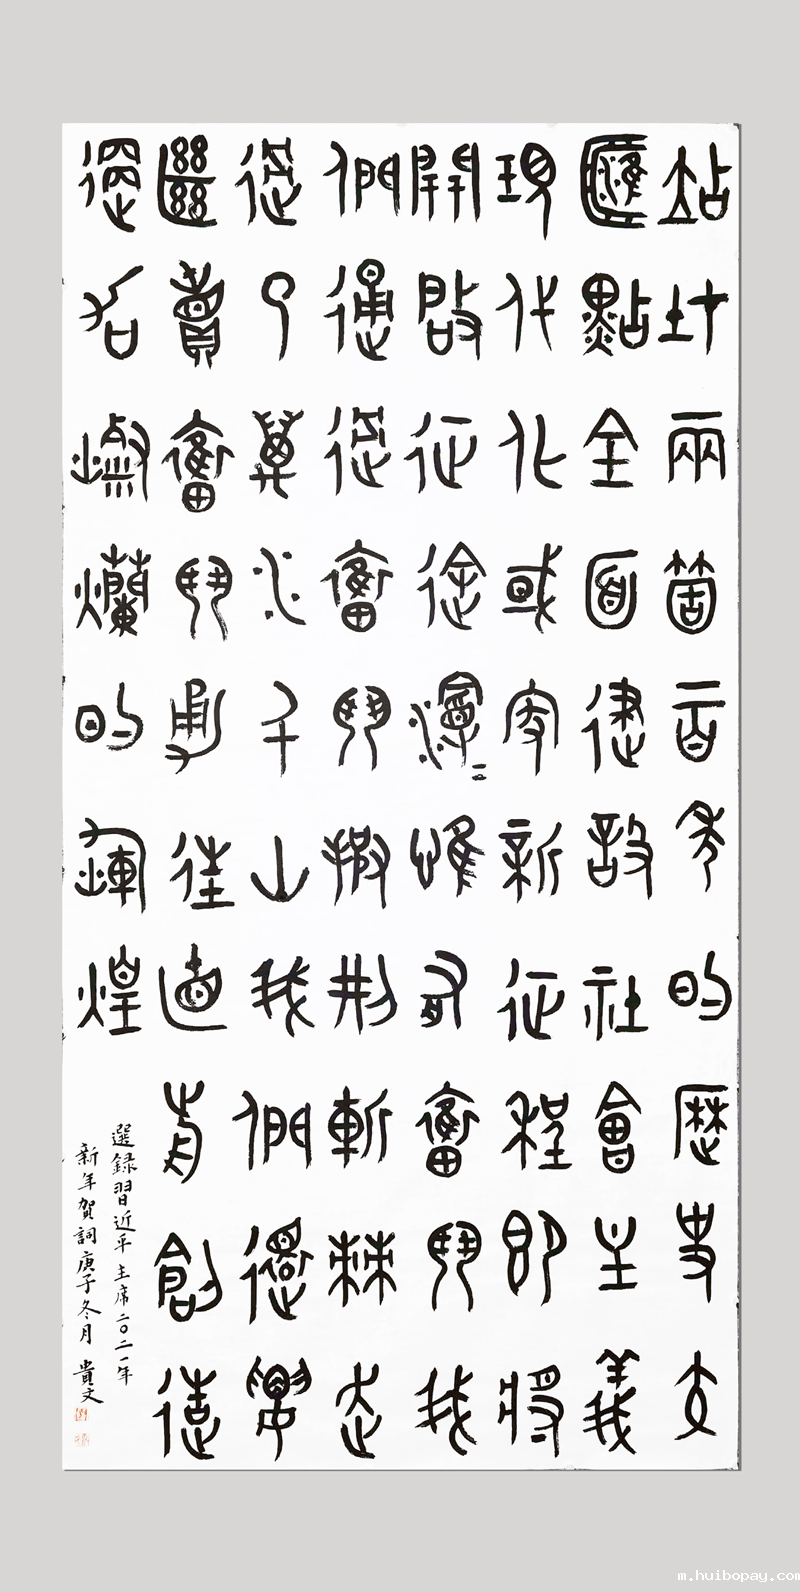 站在兩箇一百年的歷史交
匯點全面建設社會主義
現代化國家新征程即將
開啟征途漫漫唯有奮鬥我
們通過奮鬥披荊斬棘走
過了萬水千山我們還要
繼續奮鬥勇往直前創造
更加燦爛的輝煌
選錄習近平主席二〇二一年
新年賀詞庚子冬月 貴文
m.huibopay.com